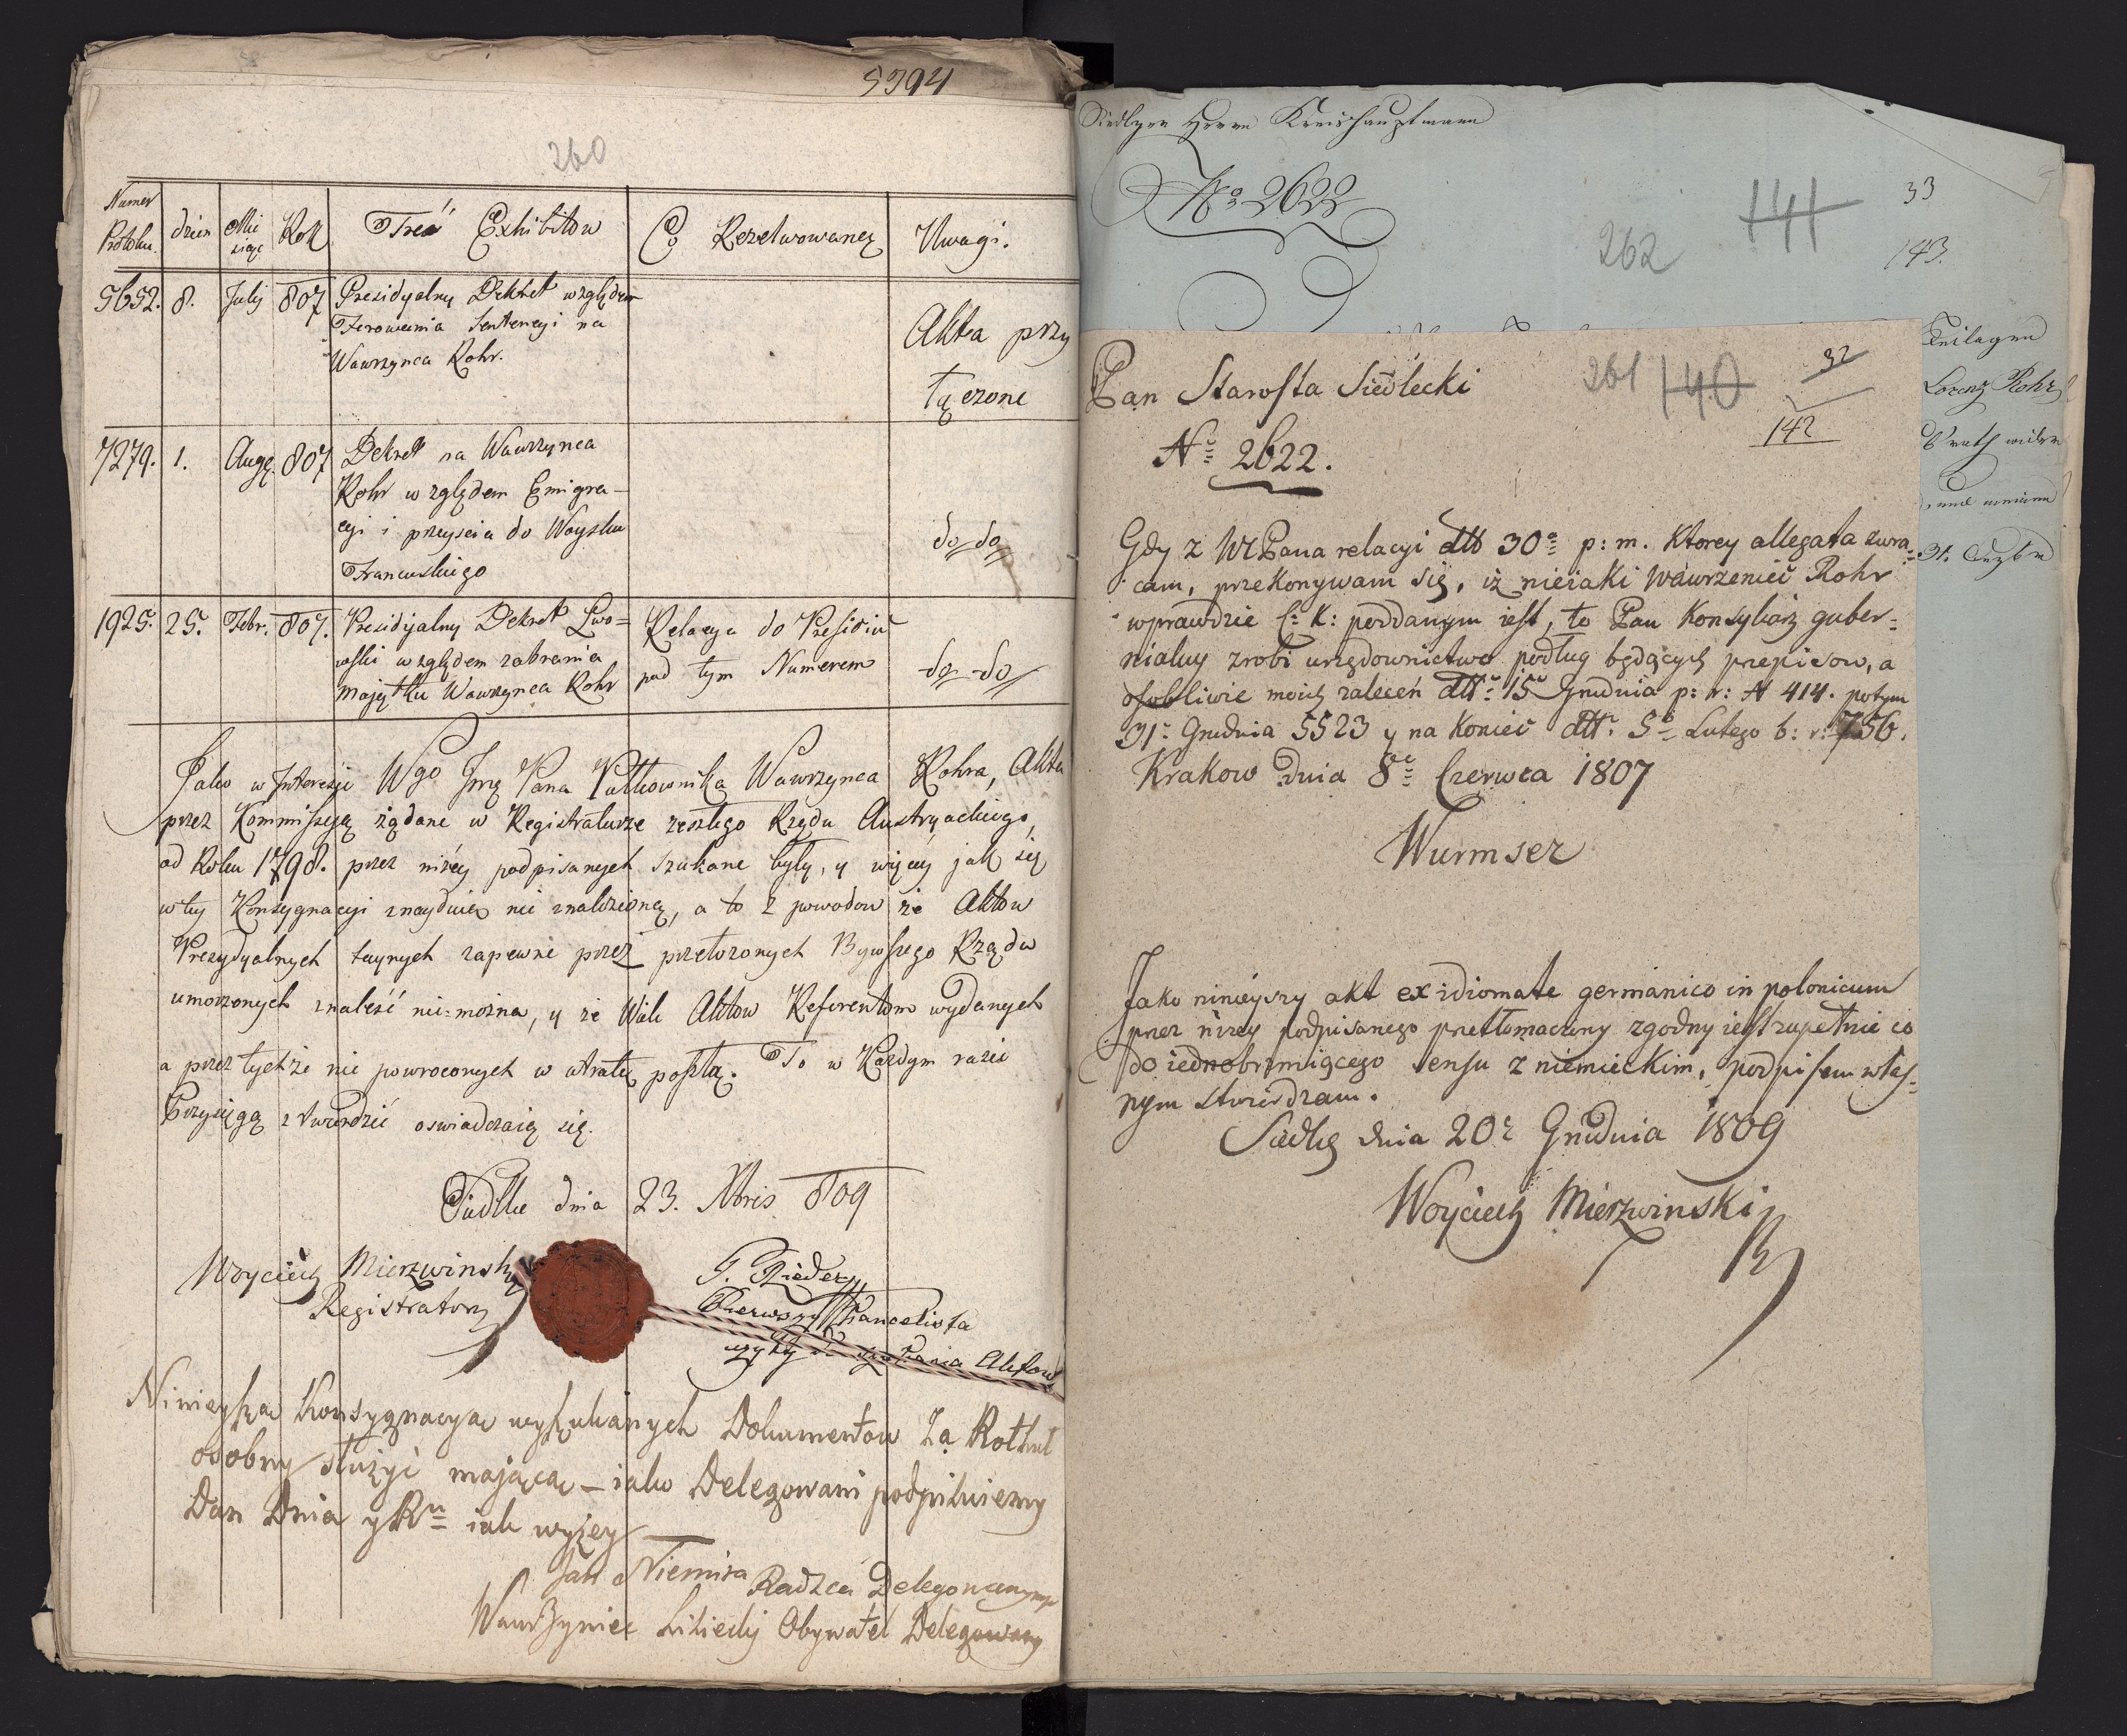 5394
260
Numer Protoku. dzien Mie siąc Rok Treść Exhibitow Co Rezelwowaneg Uwagi.
5652. 8. July 807 Prezidyalny Dekret względem
Ferowania Sentencyi na
Wawrzynca Rohr.
Akta przy
łączone
7279. 1. Aug. 807 Dekret na Wawrzynca
Rohr względem Emigra-
cyi i przyscia do Woyska
Francuskiego
do do
1925. 25. Febr. 807. Prezidyalny Dekret Lwo=
wski względem zabrania
Majątku Wawrzynca Rohr
Relacya do Presidiu
pod tym Numerem
do do
Jako w Interesie Wgo Jmę Pana Pułkownika Wawrzynca Rohra, Akta
przez Kommissyą żądane w Registraturze zeszłego Rządu Austryackiego,
od Roku 1798. przez niżey podpisanych szukane były, y więcey jak się
w tey Konsygnacyi znayduie nie znaleziono, a to z powodow że Aktow
Prezydyalnych taynych zapewne przez przełozonych Bywszego Rządu
umorzonych znaleść nie=można, y że Wiele Aktow Referentom wydanych
a przez tychże nie powroconych w utratę poszła. To w Kazdym razie
Przysięgą stwierdzić oswiadczaią się.
Siedlce dnia 23. Xbris 809
Woyciech Mierzwinski
Registrator
F. Rieder
Pierwszy Kancelista
użyty do szukania Aktow
Ninieyszą Konsygnacyą wyszukanych Dokumentow Za Rotuł
osobny służyć mającą – iako Delegowani podpisuiemy
Dan Dnia y Ru iak wyżey
Jan Niemira Radzca Delegowany
Wawrzyniec Obywatel Delegowany
Siedlcer Herrn Kreishauptmann
No 2622
262
141
33
143.
Beilagen
Lorenz Rohr
31.
Pan Starosta Siedlecki
261 140
32
142
No 2622.
Gdy z WPana relacyi dtto 30a p: m. Ktorey allegata zwra=
cam, przekonywam się, iż nieiaki Wawrzeniec Rohr
wprawdzie C: K: poddanym iest, to Pan Konsyliarz guber=
nialny zrobi urzędownictwo podług będących przepisow, a
osobliwie moich zaleceń dtto 15 Grudnia p: r: N 414. potym
31 Grudnia 5523 y na koniec dtto 5o Lutego b: r: 756.
Krakow dnia 8 Czerwca 1807
Wurmser
Jako ninieyszy akt ex idiomate germanico in polonicum
przez niżey podpisanego przetłomaczony zgodny iest zupełnie co
do iednobrzmiącego sensu z niemieckim, podpisem włas=
nym stwierdzam.
Siedlce dnia 20 Grudnia 1809
Woyciech Mierzwinski